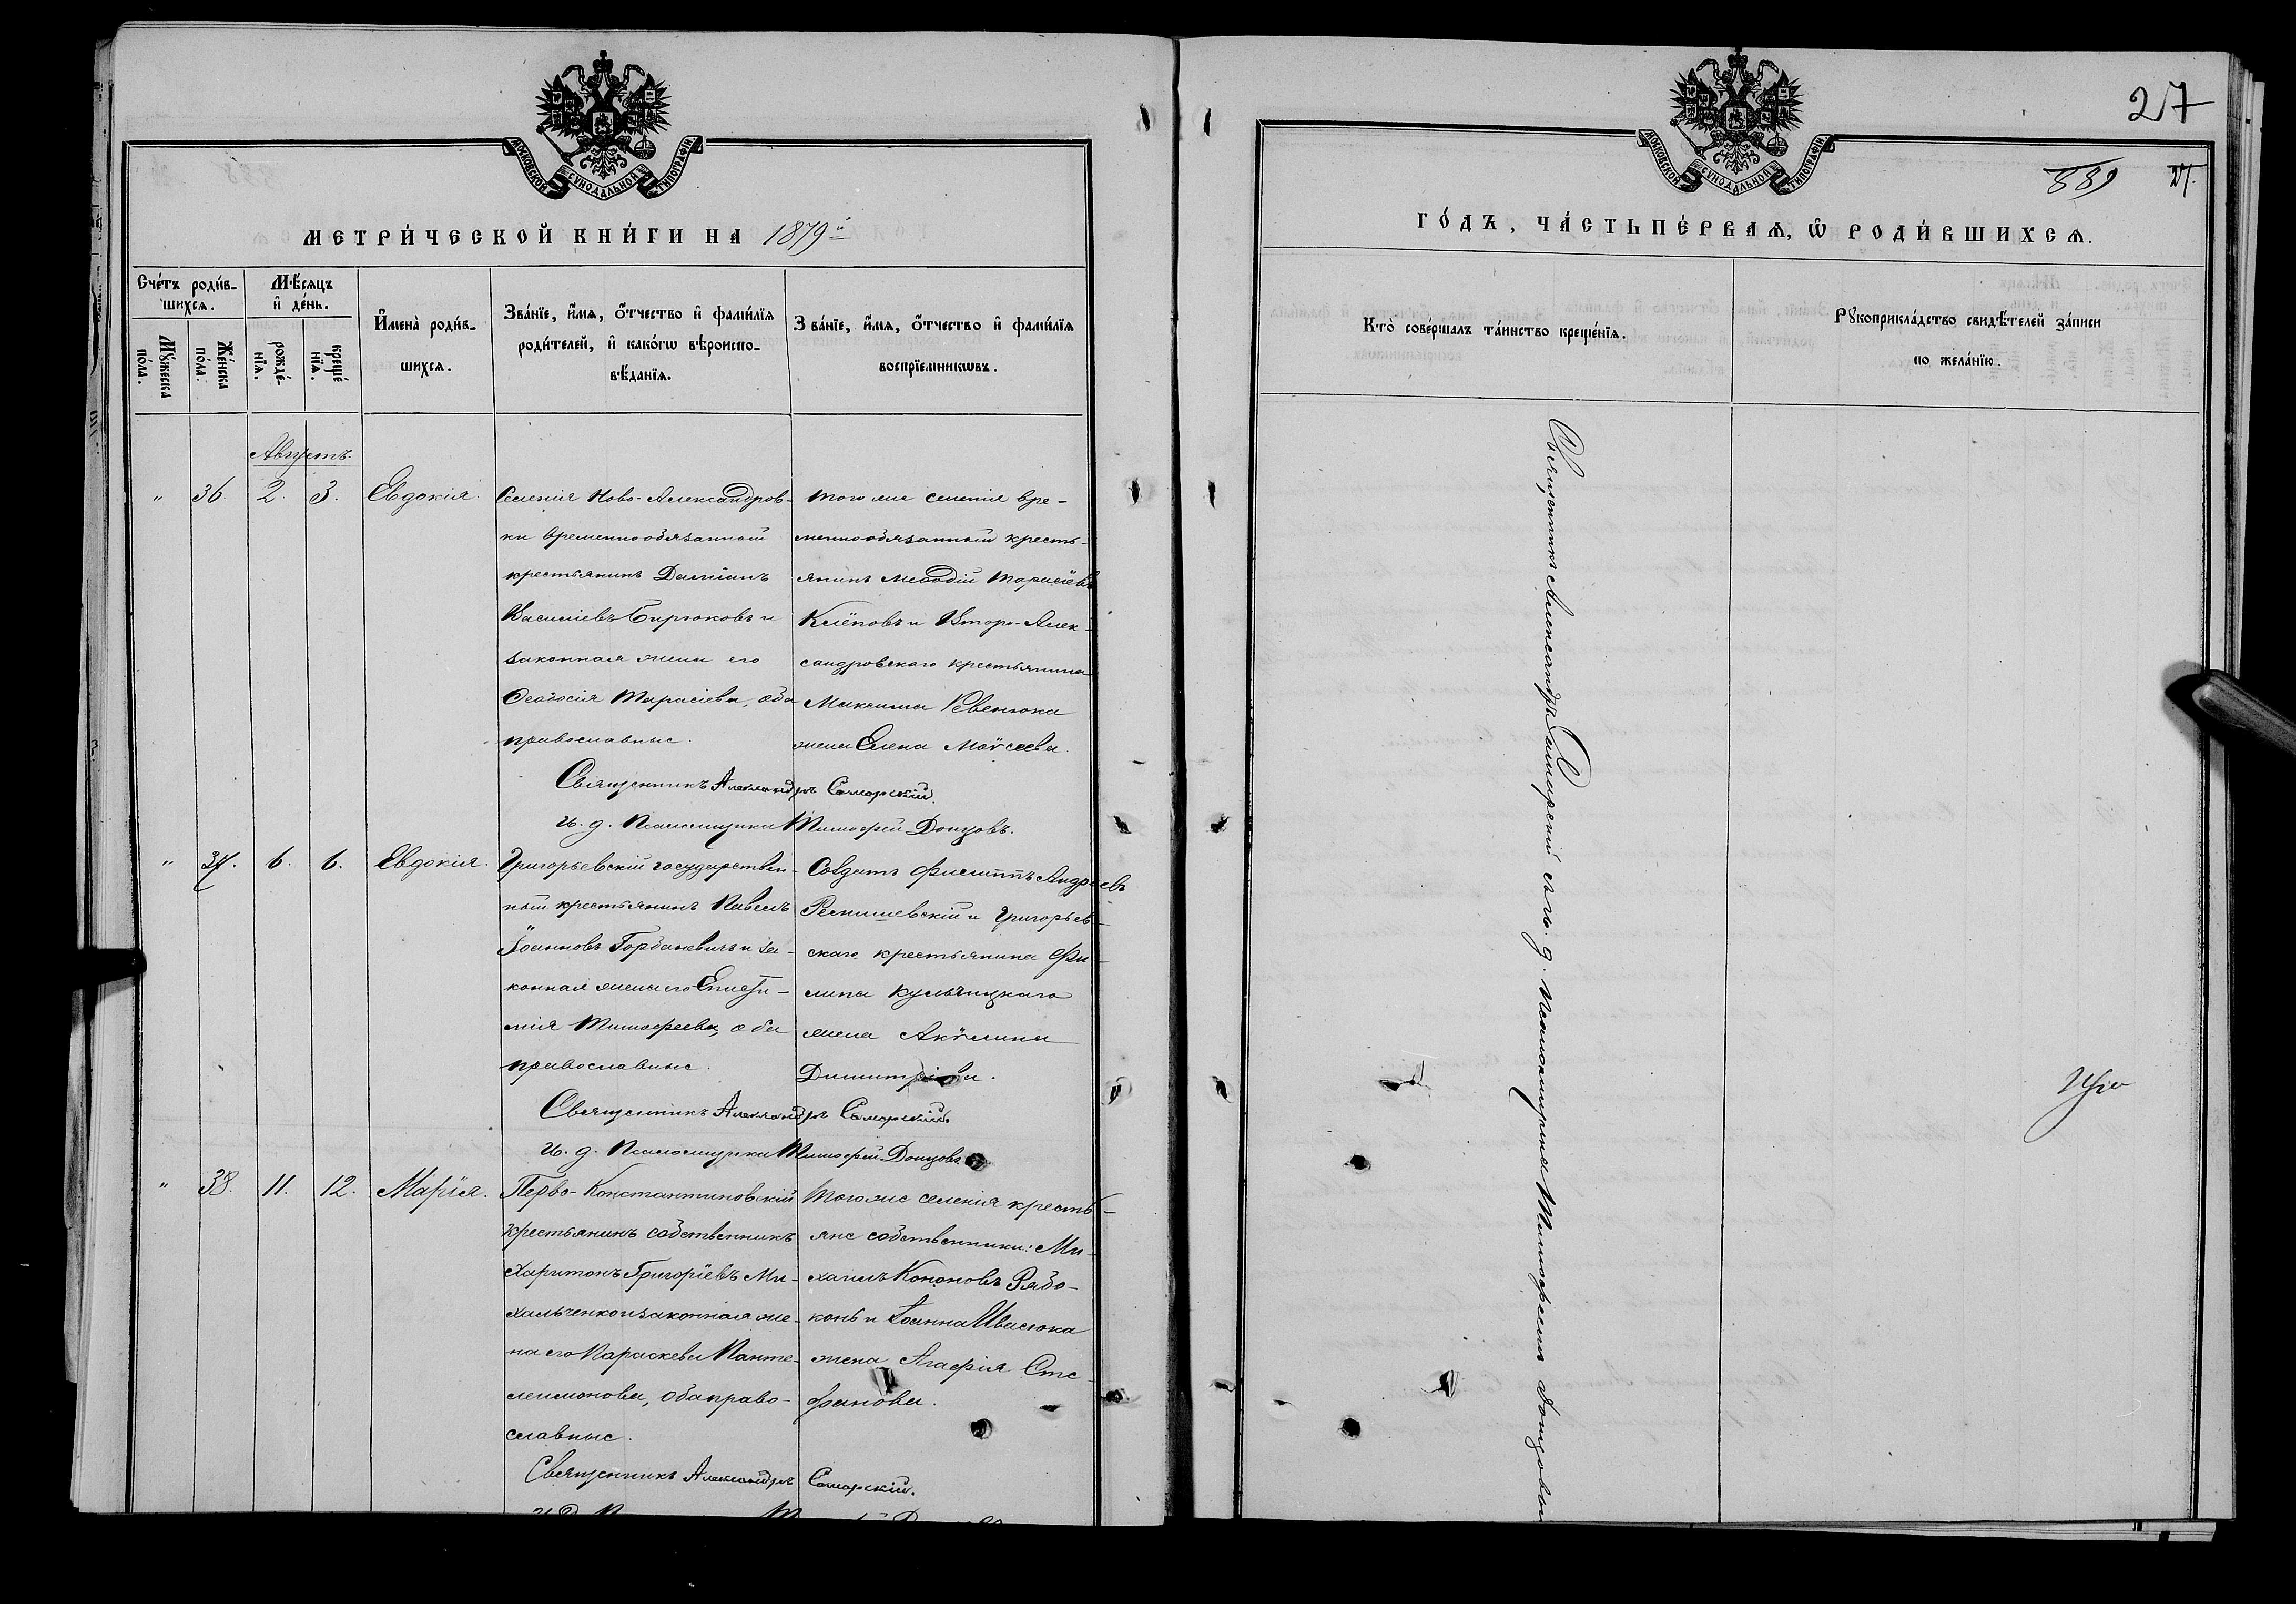 МОСКОВСКОЙ СѴНОДАЛЬНОЙ ТИПОГРАФІИ.
МЕТРИ́ЧЕСКОЙ КНИ́ГИ НА 1879й
Сче́тъ роди́в-
шихсѧ.
Мꙋ́жеска
по́ла.
Же́нска
по́ла.
Мѣ́сѧцъ
и҆ де́нь.
рожде́-
нїѧ.
креще́
нїѧ.
И҆мена̀ роди́в-
шихсѧ.
Зва́нїе, и҆́мѧ, ѻ҆́тчество и҆ фамѝлїѧ
роди́телей, и҆ како́гѡ вѣроиспо-
вѣ́данїѧ.
Зва́нїе, и҆́мѧ, ѻ҆́тчество и҆ фамѝлїѧ
воспрїе́мникѡвъ.
Августъ.
" 36. 2. 3. Евдокія
Селенія Ново-Александров-
ки временнообязанный
крестьянинъ Даміанъ
Василіевъ Бирюковъ и
законная жена его
Феодосія Тарасіева, оба
православные.
того же селенія вре-
меннообязанный кресть-
янинъ Меѳодій Тарасіевъ
Клёповъ и Второ-Алек-
сандровскаго крестьянина
Максима Ревенюка
жена Елена Моѵсеева.
Священникъ Александръ Самарскій.
И. д. Псаломщика Тимофей Донцовъ.
" 37. 6. 6. Евдокія.
Григорьевскій государствен-
ный крестьянинъ Павелъ
Іоанновъ Горбаневичъ и за-
конная жена его Еписти-
мія Тимофеева, оба
православные.
Солдатъ Филиппъ Андреевъ
и Григорьев-
скаго крестьянина Фи-
липа Кульчицкаго
жена Акѵлина
Димитріева.
Священникъ Александръ Самарскій.
И. д. Псаломщика Тимофей Донцовъ
" 38. 11. 12. Марія.
Перво-Константиновскій
крестьянинъ собственникъ
Харитонъ Григоріевъ Ми-
хальченко и законная же-
на его Параскева Панте-
леимонова, оба право-
славные.
Того же селенія кресть-
яне собственники: Ми-
хаилъ Кононовъ Рябо-
конь и Іоанна Ивасюка
жена Агафія Сте-
фанова.
Священникъ Александръ Самарскій.
27
889
27.
МОСКОВСКОЙ СѴНОДАЛЬНОЙ ТИПОГРАФІИ.
ГО́ДЪ, ЧА́СТЬ ПЕ́РВАѦ, Ѡ РОДИ́ВШИХСѦ.
Кто̀ соверша́лъ та́инство креще́нїѧ.
Рꙋкоприкла́дство свидѣ́телей за́писи
по жела́нїю.
Священникъ Александръ Самарскій съ и. д. псаломщика Тимофеемъ Донцовым